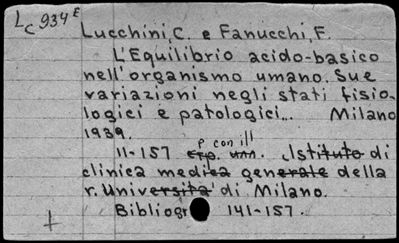 Lc 934 E
Lucchini, C. e Fanucchi, F.
L'Equilibrio acido-basico
nell'organismo umano. Sue
variazioni negli stati fisio-
logici e patologici... Milano
1939.
p con ill
11-157 Istituto di
clinica medica generale della
r. Università di Milano.
Bibliogr 141-157.